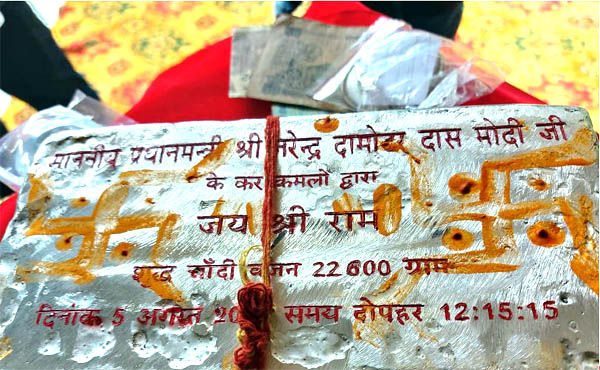 माननीय प्रधानमन्त्री श्री नरेन्द्र दामोदर दास मोदी जी
के कर कमलों द्वारा
जय श्री राम
शुद्ध चाँदी वजन 22600 ग्राम
दिनांक 5 अगस्त 20 समय दोपहर 12:15:15